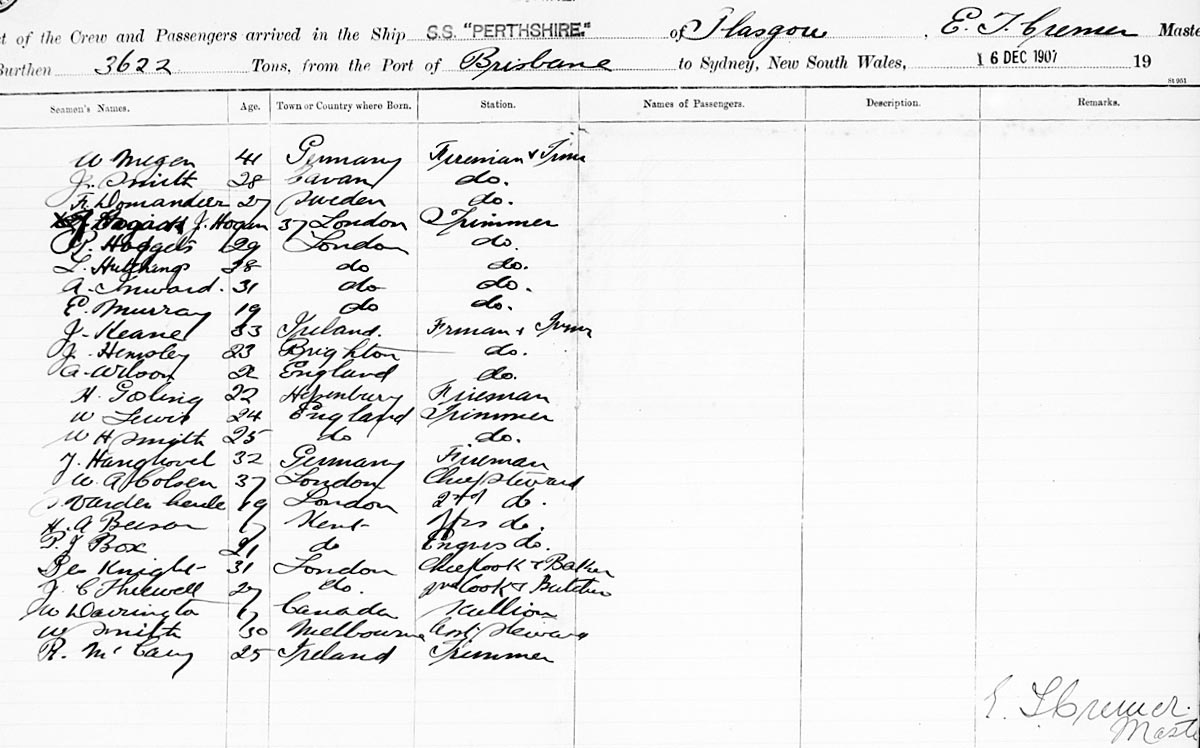 of the Crew and Passengers arrived in the Ship S.S. "PERTHSHIRE." of Glasgow, E. T. Cremer Maste
Burthen 3622 Tons, from the Port of Brisbane to Sydney, New South Wales, 16 DEC 1907 19
St 951
Seamen's Names. Age. Town or Country where Born. Station. Names of Passengers. Description. Remarks.
W Megen 41 Germany Fireman & Trim
J. Smith 28 Cavan do.
F. Domandeer 27 Sweden do.
J. Hogan 37 London Trimmer
Hodgets 29 London do.
L. Hutchings 38 do do.
A. Inward. 31 do do.
E. Murray 19 do do.
J. Keane 33 Ireland. Frman & Trimr
J. Hemsley 23 Brighton do.
A. Wilson England do.
H. Gosling 22 Fireman
W Lewis 24 England Trimmer
W H Smith 25 do do.
J. Hanghovel 32 Germany Fireman
W. A. Colsen 37 London Chief Steward
Varden 19 London 2nd do.
H. A Beeson 17 Kent do.
P. J Box 21 do Engrs do.
Geo Knight 31 London Chief Cook & Baker
J. C Thulwell 27 do. Cook & Butcher
W Darrington 17 Canada Scullion
W Smith 30 Melbourne Steward
R. McCarry 25 Ireland Trimmer
E. T. Cremer.
Maste